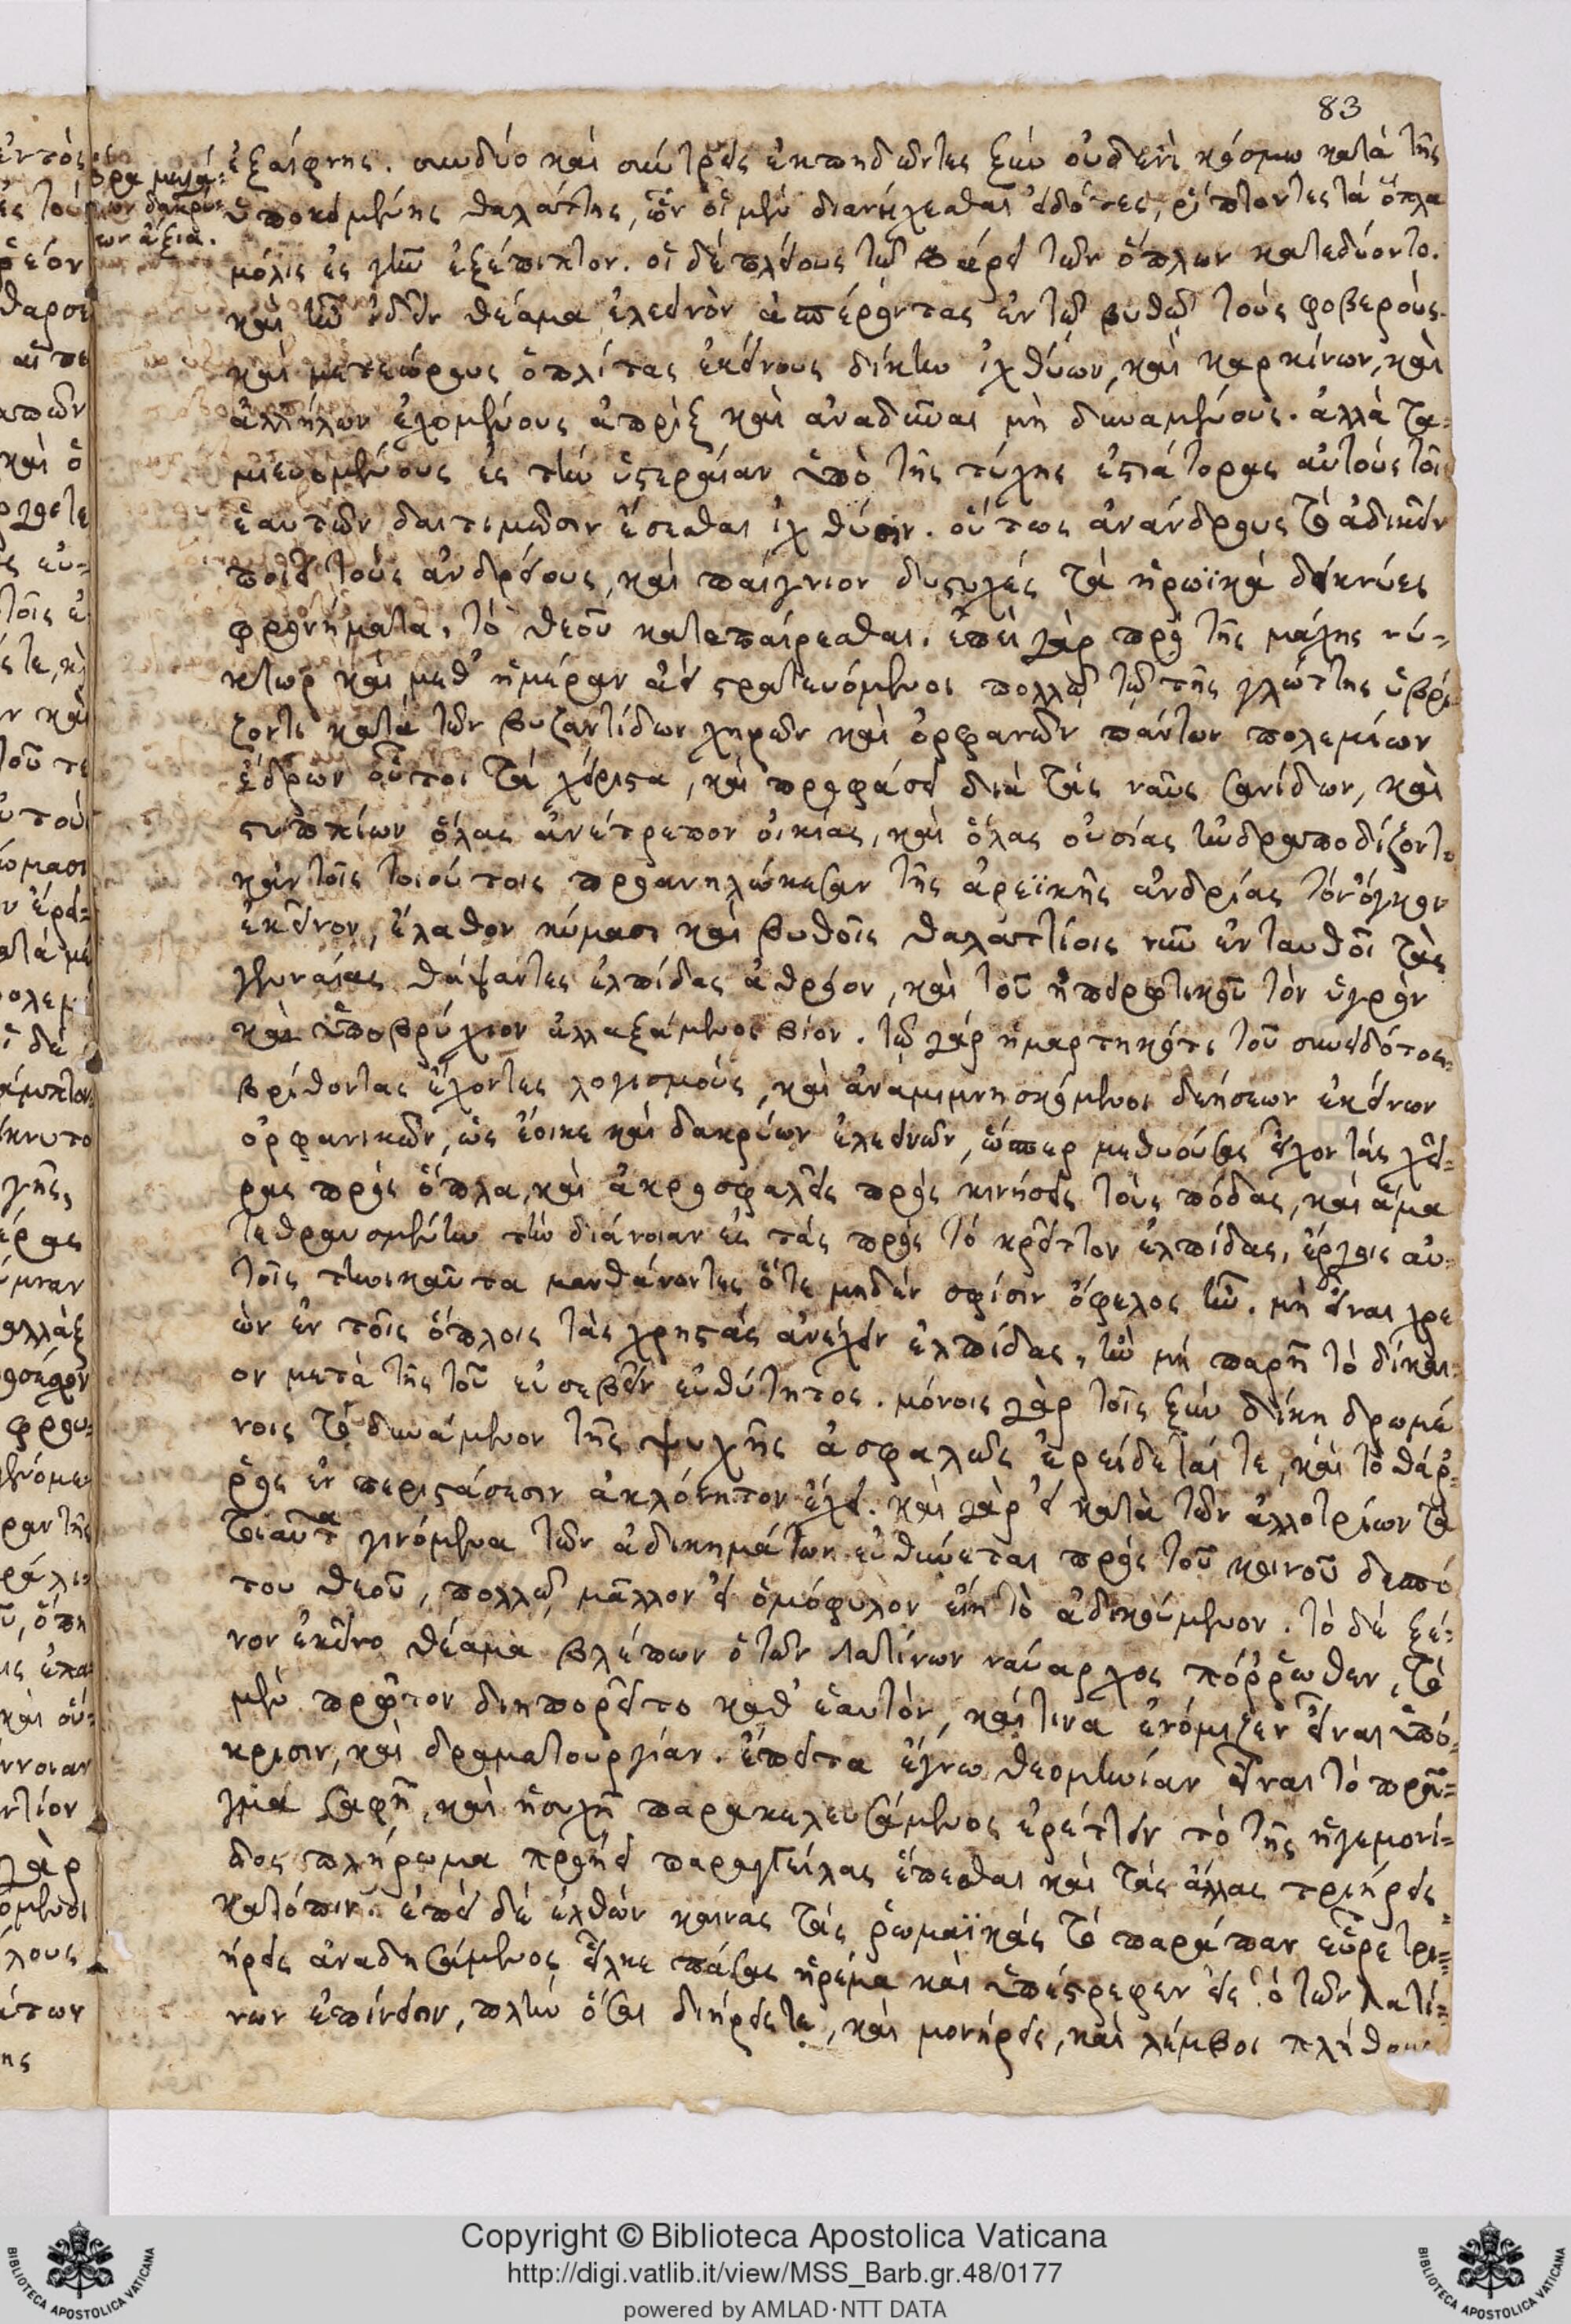 83
ὅρα μεγά-
λων δακρύ-
ων ἄξια.
ἐξαίφνης. συνδύο καὶ σύντρεις ἐκπηδῶντες ξὺν οὐδενὶ κόσμω κατὰ τῆς
ὑποκειμένης θαλάττης, ὧν οἱ μὲν διανήχεσθαι εἰδότες, ῥίπτοντες τὰ ὅπλα
μόλις ἐς γῆν ἐξέπιπτον. οἱ δὲ πλείους τῶ βάρει τῶν ὅπλων κατεδύοντο.
καὶ ἦν ἰδεῖν θέαμα ἐλεεινὸν ἀπείροντας ἐν τῶ βυθῶ τοὺς φοβεροὺς
καὶ μετεώρους ὁπλίτας ἐκείνους δίκην ἰχθύων, καὶ καρκίνων, καὶ
ἀλλήλων ἐχομένους ἀπρὶξ καὶ ἀναδῦναι μὴ δυναμένους. ἀλλὰ τα-
μιευομένους ἐς τὴν ὑστεραίαν ὑπὸ τῆς τύχης ἑστιάτορας αὐτοὺς τοῖς
ἑαυτῶν δαιτυμόσιν ἔσεσθαι ἰχθύσιν. οὕτως ἀνάνδρους τὸ ἀδικεῖν
ποιεῖ τοὺς ἀνδρείους, καὶ παίγνιον δυστυχὲς τὰ ἡρωϊκὰ δείκνυες
φρονήματα, τὸ θεοῦ κατεπαίρεσθαι. ἐπεὶ γὰρ πρὸ τῆς μάχης νύ-
κτωρ καὶ μεθ' ἡμέραν ἀεὶ στρατευόμενοι πολλῶ τῶ τῆς γλώττης ὑβρί-
ζοντι κατὰ τῶν βυζαντίδων χηρῶν καὶ ὀρφανῶν πάντων πολεμίων
ἔδρων οὗτοι τὰ χείριστα, καὶ προφάσει διὰ τὰς ναῦς σανίδων, καὶ
στυππίων ὅλας ἀνέτρεπον οἰκίας, καὶ ὅλας οὐσίας ἠνδραποδίζοντο
κἀν τοῖς τοιούτοις προανηλώκεσαν τῆς ἀρεϊκῆς ἀνδρίας τὸν ὄγκον
ἐκεῖνον, ἔλαθον κύμασι καὶ βυθοῖς θαλαττίοις νῦν ἐνταυθοῖ τὰς
γενναίας θάψαντες ἐλπίδας ἀθρόον, καὶ τοῦ ἠπειρωτικοῦ τὸν ὑγρὸν
καὶ ὑποβρύχιον ἀλλαξάμενοι βίον. τῶ γὰρ ἡμαρτηκότι τοῦ συνειδότος
βρίθοντας ἔχοντες λογισμοὺς, καὶ ἀναμιμνησκόμενοι δεήσεων ἐκείνων
ὀρφανικῶν, ὡς ἔοικε καὶ δακρύων ἐλεεινῶν, ὥσπερ μεθυούσας εἶχον τὰς χεῖ-
ρας πρὸς ὅπλα, καὶ ἀκροσφαλεῖς πρὸς κινήσεις τοὺς πόδας, καὶ ἅμα
τεθραυσμένην τὴν διάνοιαν ἐς τὰς πρὸς τὸ κρεῖττον ἐλπίδας, ἔργοις αὐ-
τοῖς τηνικαῦτα μανθάνοντες ὅτι μηδὲν σφίσιν ὄφελος ἦν. μὴ δ' εἶναι χρε
ὼν ἐν τοῖς ὅπλοις τὰς χρηστὰς ἀνέχειν ἐλπίδας, ἢν μὴ παρῆ τὸ δίκαι-
ον μετὰ τῆς τοῦ εὐσεβεῖν εὐθύτητος. μόνοις γὰρ τοῖς ξὺν δίκη δρωμέ
νοις τὸ δυνάμενον τῆς ψυχῆς ἀσφαλῶς ἐρείδεταί τε, καὶ τὸ θάρ-
ρος ἐν περιστάσεσιν ἀκλόνητον ἔχει. καὶ γὰρ εἰ κατὰ τῶν ἀλλοτρίων τὰ
τοιαῦτα γινόμενα τῶν ἀδικημάτων εὐθύνεται πρὸς τοῦ κοινοῦ δεσπό
του θεοῦ, πολλῶ μᾶλλον εἰ ὁμόφυλον εἴη τὸ ἀδικούμενον. τὸ δὲ ξέ-
νον ἐκεῖνο θέαμα βλέπων ὁ τῶν λατίνων ναύαρχος πόρρωθεν, τὸ
μὲν πρῶτον διηπορεῖτο καθ' ἑαυτὸν, καί τινα ἐνόμιζεν εἶναι ὑπό-
κρισιν, καὶ δραματουργίαν. ἔπειτα ἔγνω θεομηνίαν εἶναι τὸ πρᾶ-
γμα σαφῆ, καὶ ἡσυχῆ παρακελευσάμενος ἐρέττειν τὸ τῆς ἡγεμονί-
δος πλήρωμα προήει παραγγείλας ἕπεσθαι καὶ τὰς ἄλλας τριήρεις
κατόπιν. ἐπεὶ δὲ ἐλθὼν κεινὰς τὰς ῥωμαϊκὰς τὸ παράπαν εὗρε τρι-
ήρεις ἀναδησάμενος εἷλκε πάσας ἠρέμα καὶ ὑπέστρεφεν εἰς ὁ τῶν λατί-
νων ἐπίνειον, πλὴν ὅσαι διήρεις τε, καὶ μονήρεις, καὶ λέμβοι πλήθους
Copyright © Biblioteca Apostolica Vaticana
http://digi.vatlib.it/view/MSS_Barb.gr.48/0177
powered by AMLAD·NTT DATA
BIBLIOTECA APOSTOLICA VATICANA
BIBLIOTECA APOSTOLICA VATICANA